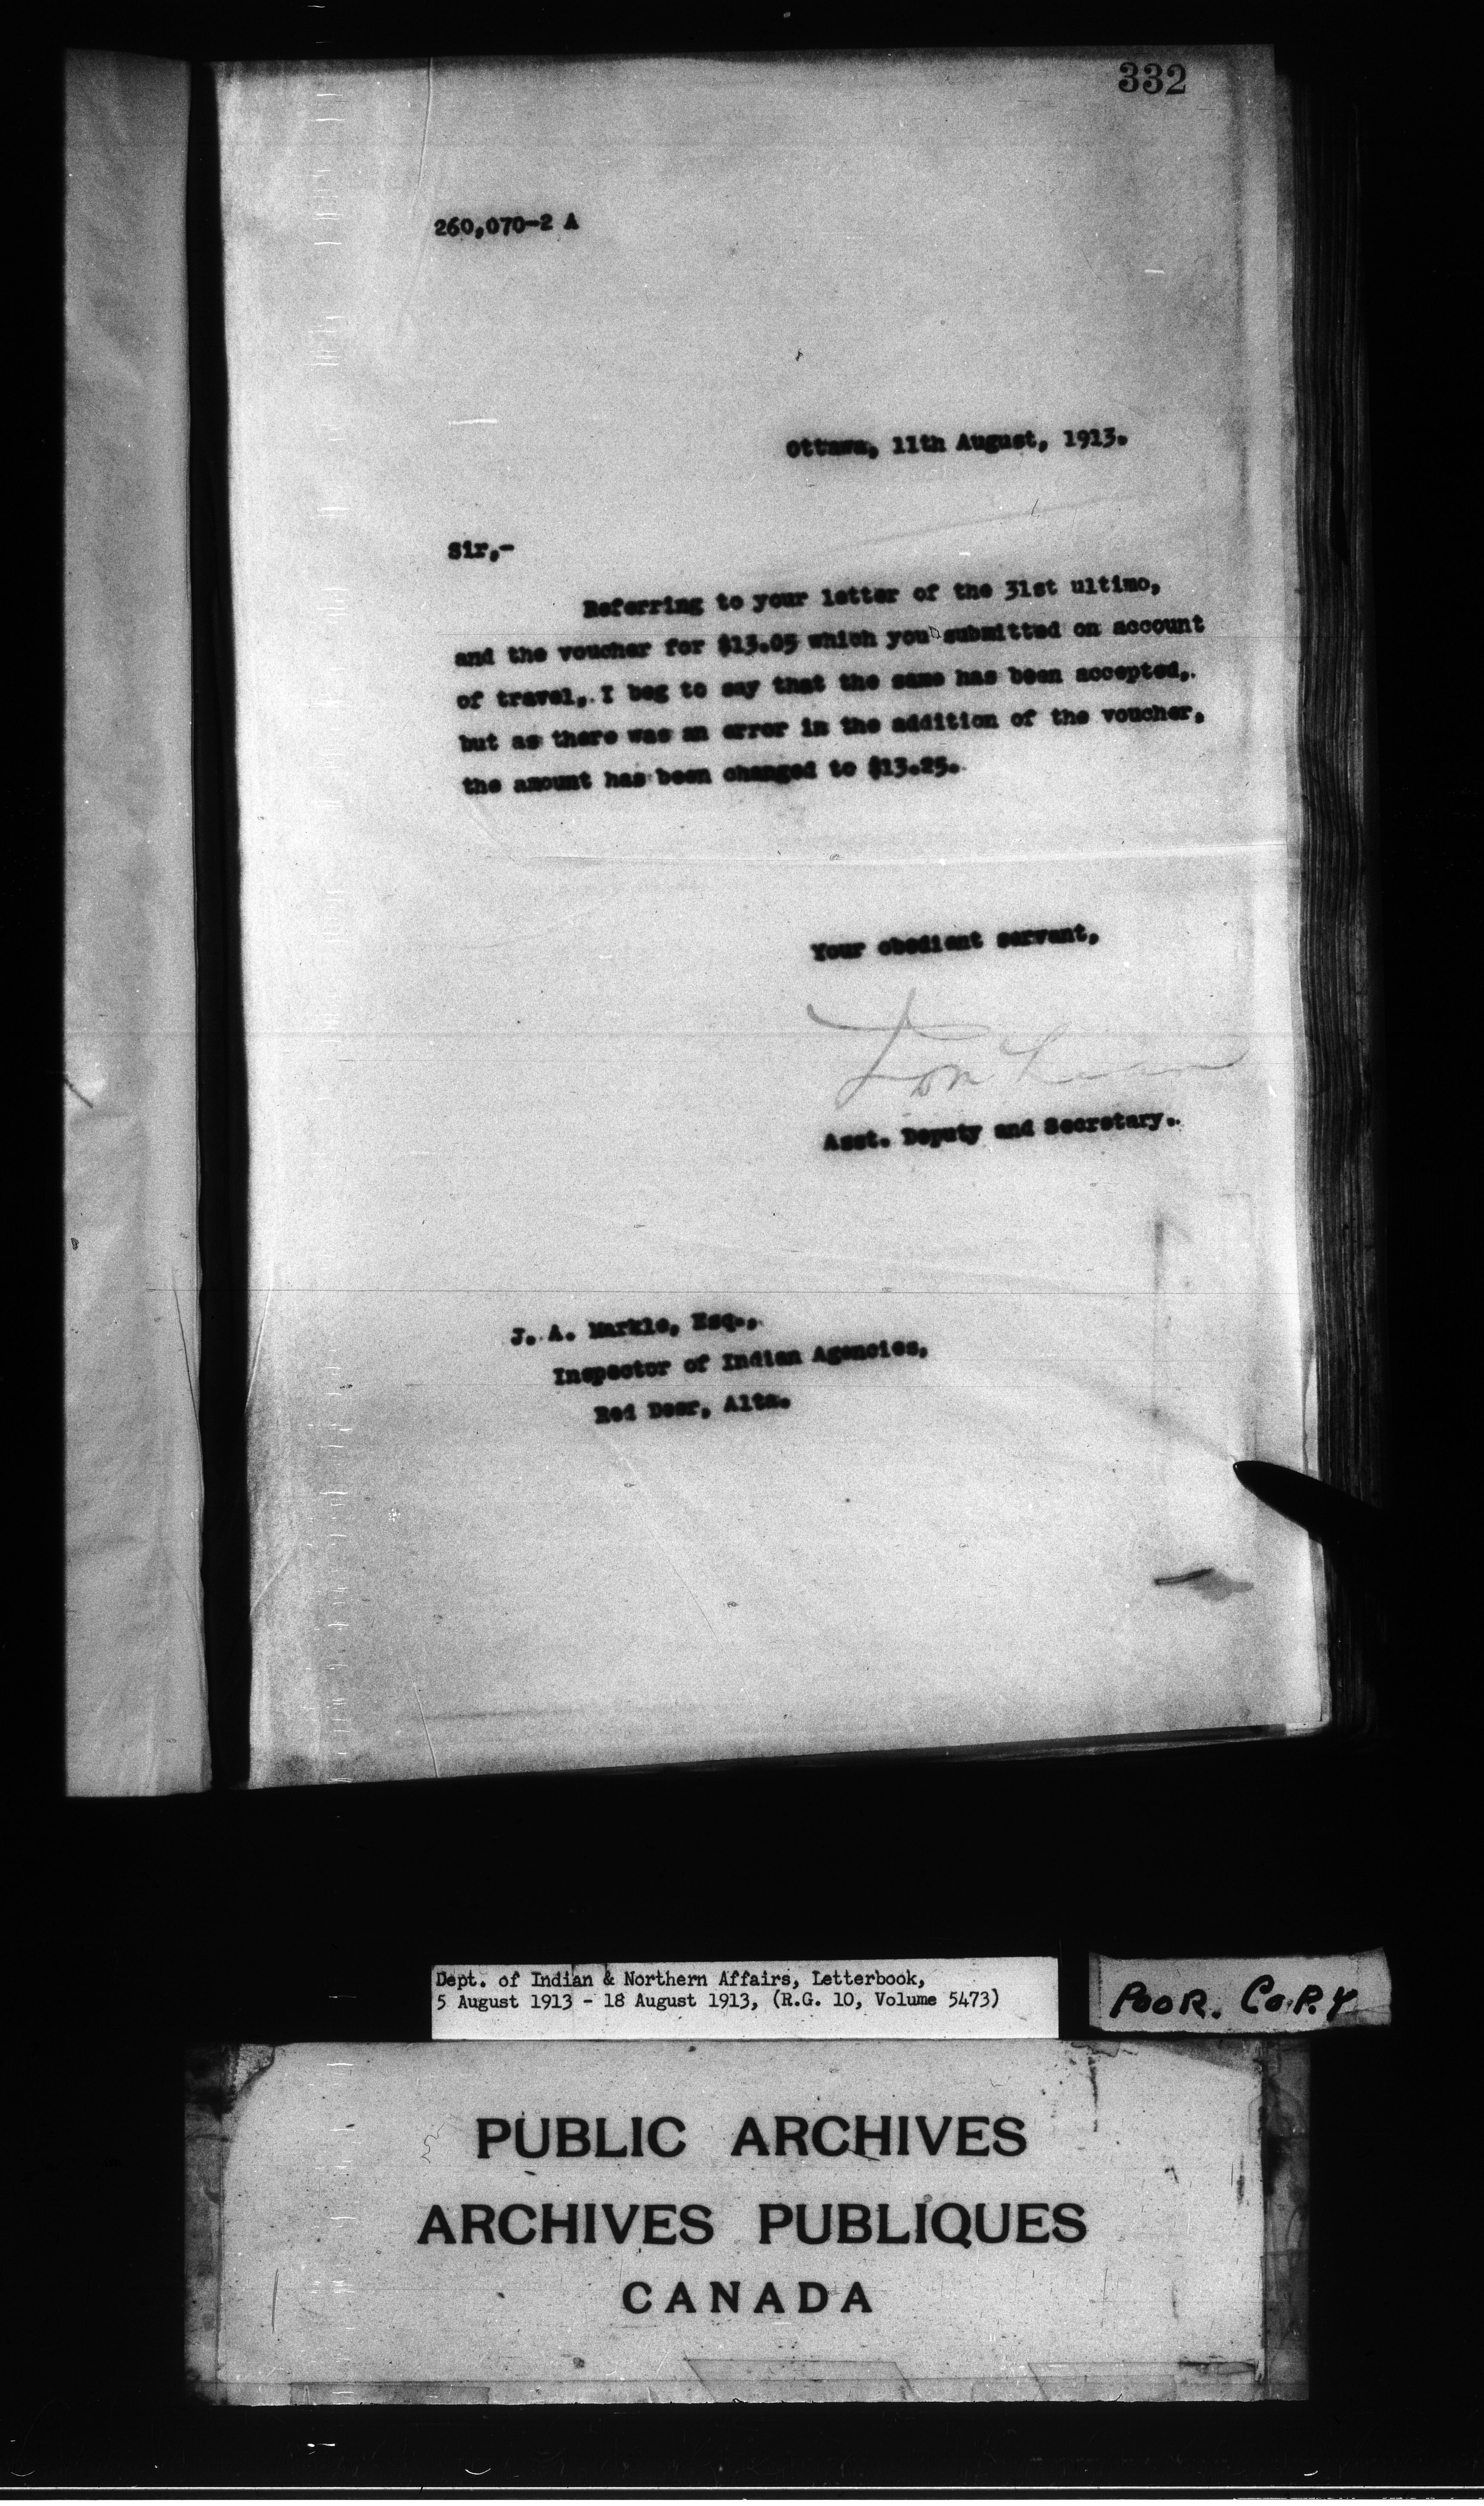 332
260,070-2 A
Ottawa, 11th August, 1913.
Sir,-
Referring to your letter of the 31st ultimo,
and the voucher for $13.05 which you submitted on account
of travel, I beg to say that the same has been accepted,
but as there was an error in the addition of the voucher,
the amount has been changed to $13.25.
Your obedient servant,
Asst. Deputy and Secretary.
J. A. Markle, Esq.,
Inspector of Indian Agencies,
Red Deer, Alta.
Dept. of Indian & Northern Affairs, Letterbook,
5 August 1913 - 18 August 1913, (R.G. 10, Volume 5473)
POOR. COPY
PUBLIC ARCHIVES
ARCHIVES PUBLIQUES
CANADA